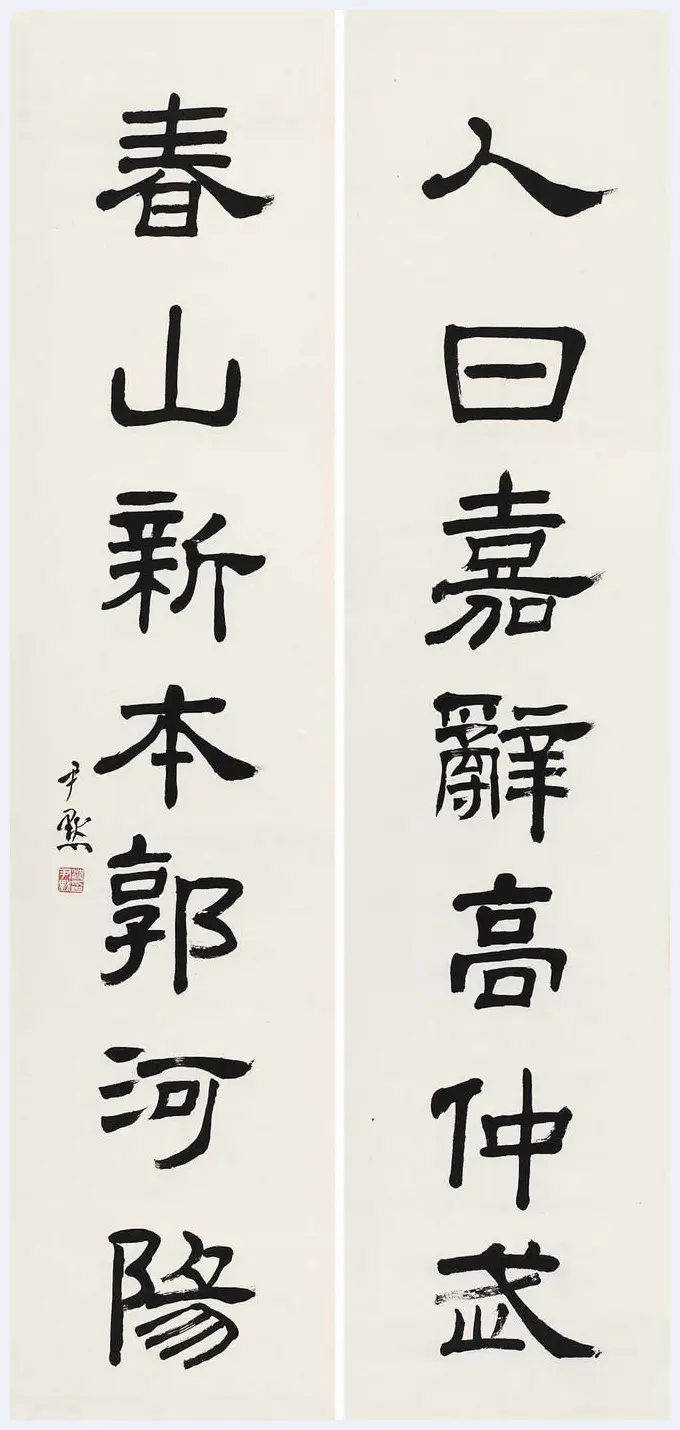 人日嘉辭高仲武
春山新本郭河陽
尹默